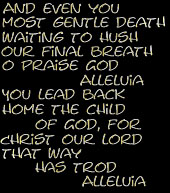 AND EVEN YOU
MOST GENTLE DEATH
WAITING TO HUSH
OUR FINAL BREATH
O PRAISE GOD
ALLELUIA
YOU LEAD BACK
HOME THE CHILD
OF GOD, FOR
CHRIST OUR LORD
THAT WAY
HAS TROD
ALLELUIA